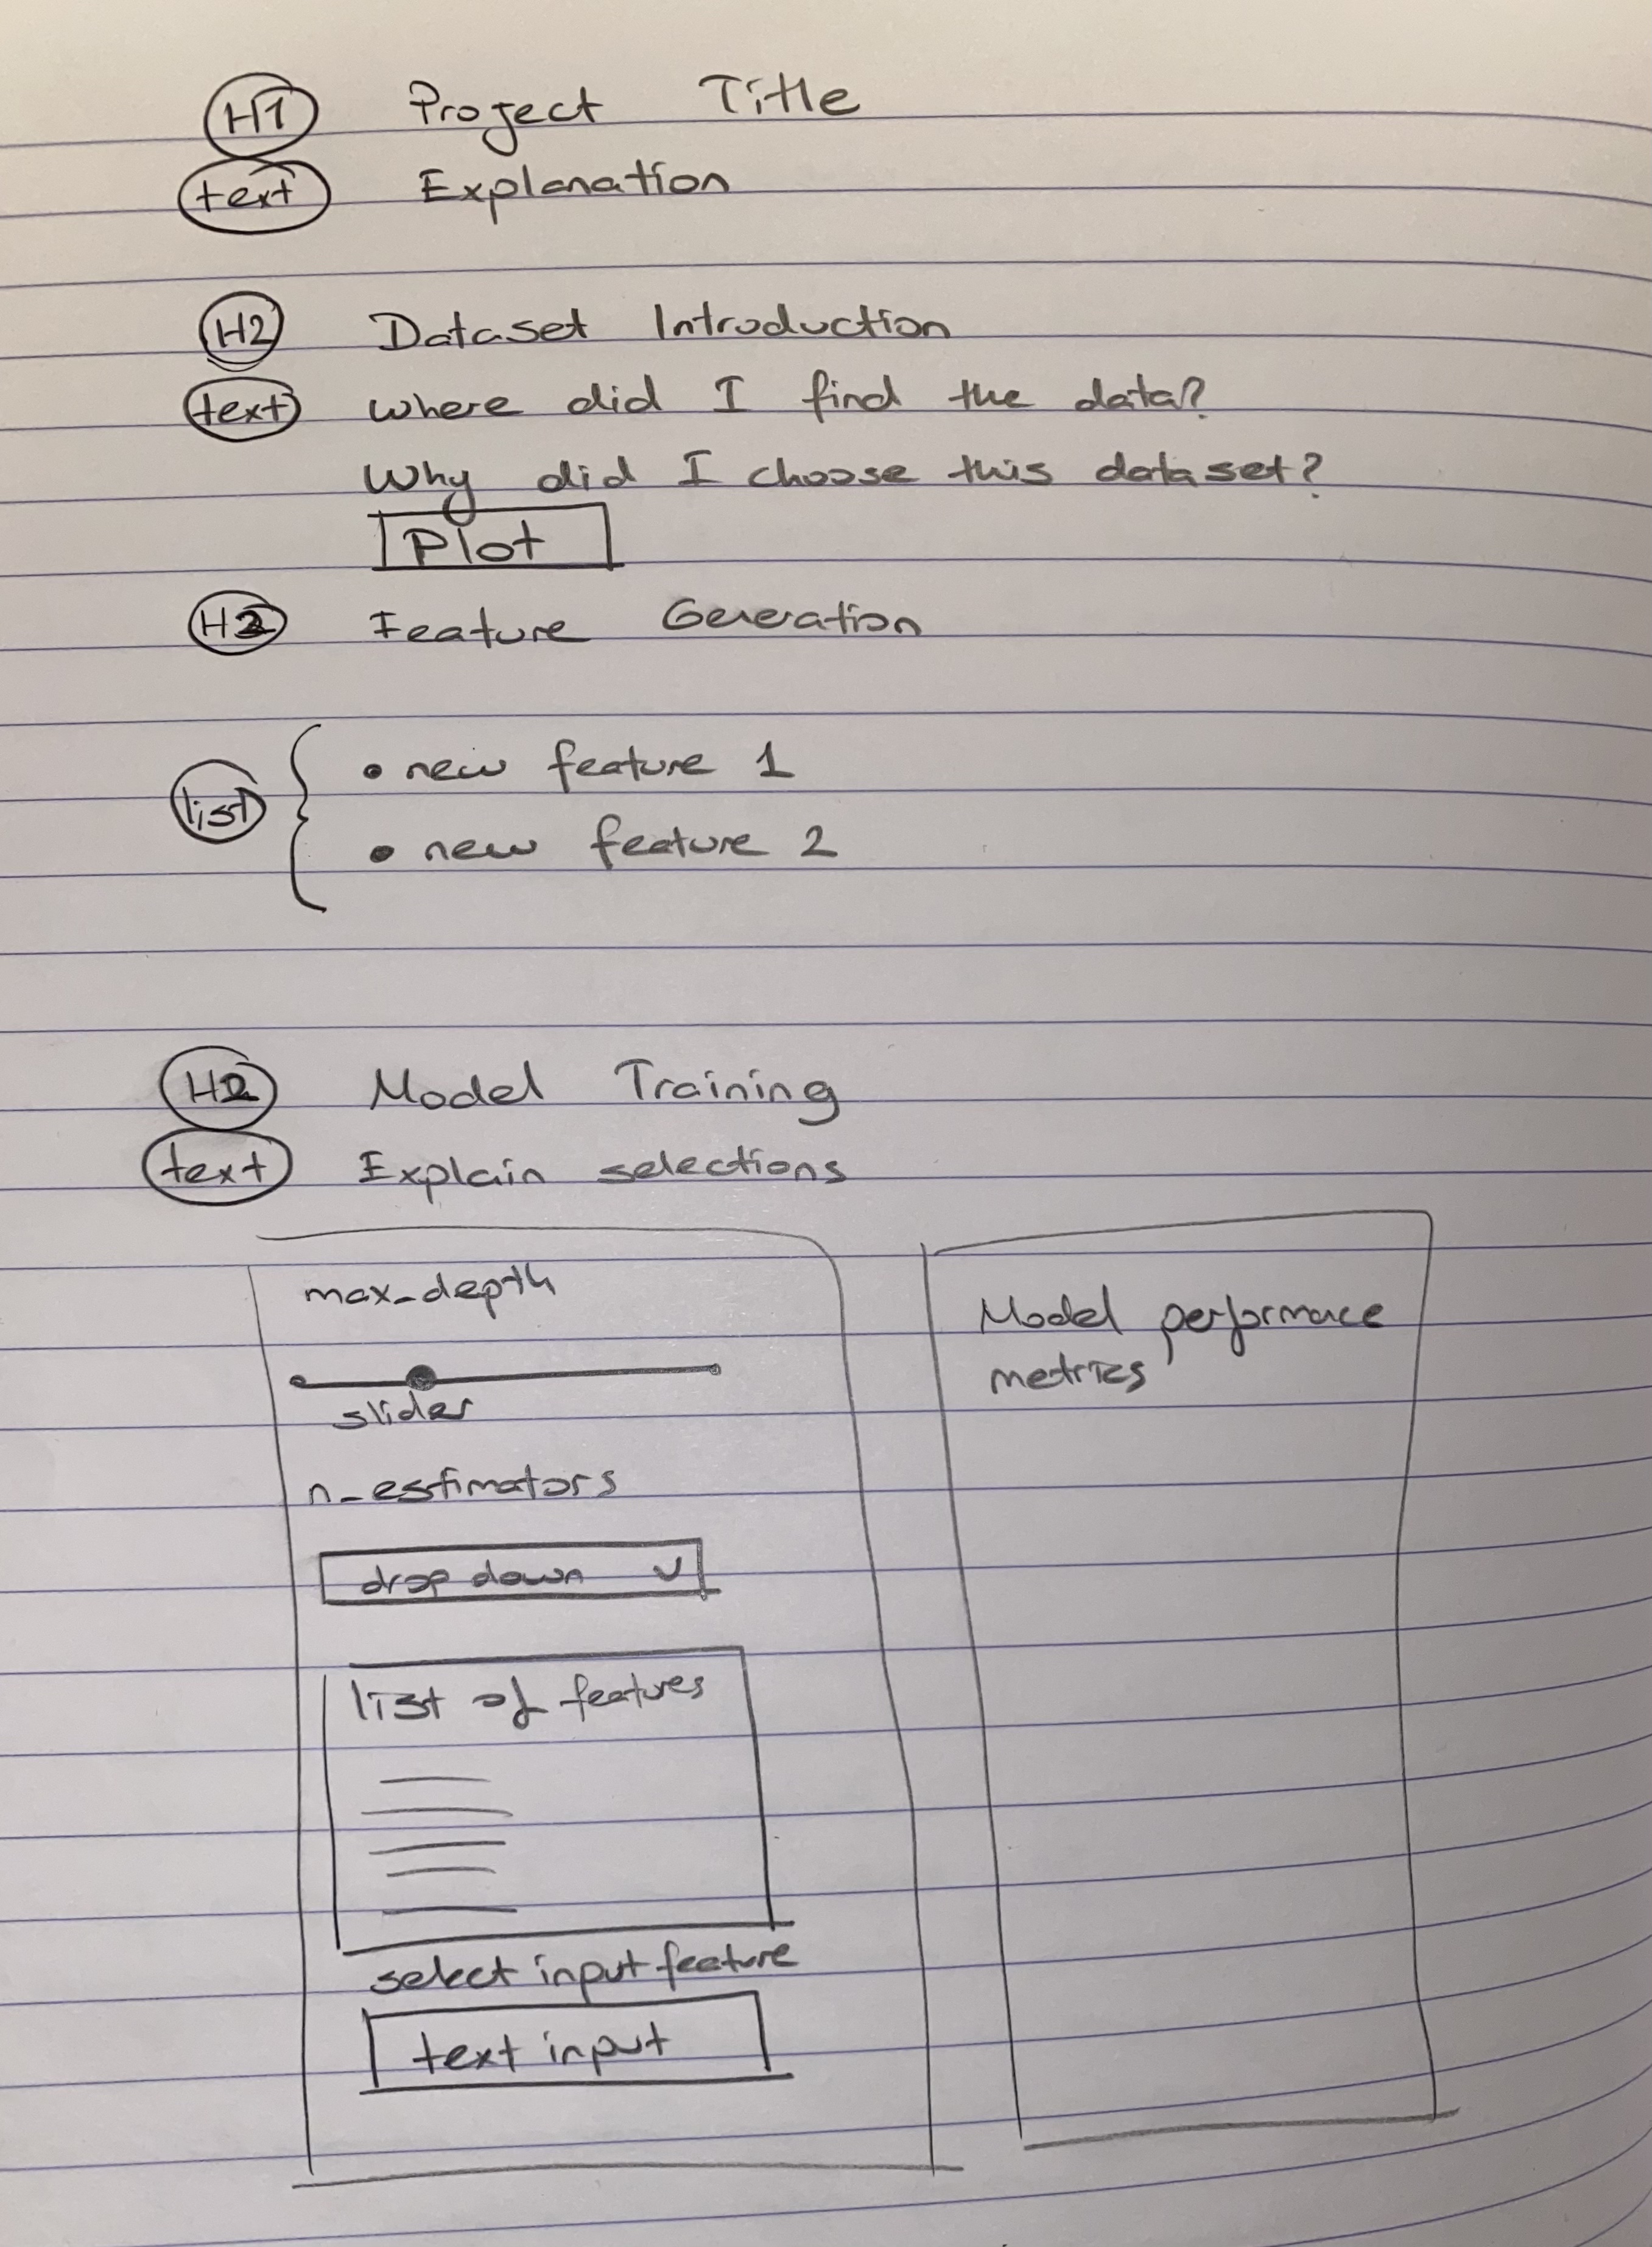 H1 Project Title
text Explanation
H2 Dataset Introduction
text where did I find the data?
Why did I choose this dataset?
Plot
H2 Feature Generation
list
• new feature 1
• new feature 2
H2 Model Training
text Explain selections
max_depth
slider
n_estimators
drop down
list of features
select input feature
text input
Model performance
metrics